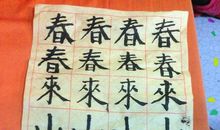 春春春春
春春春春
來來來來